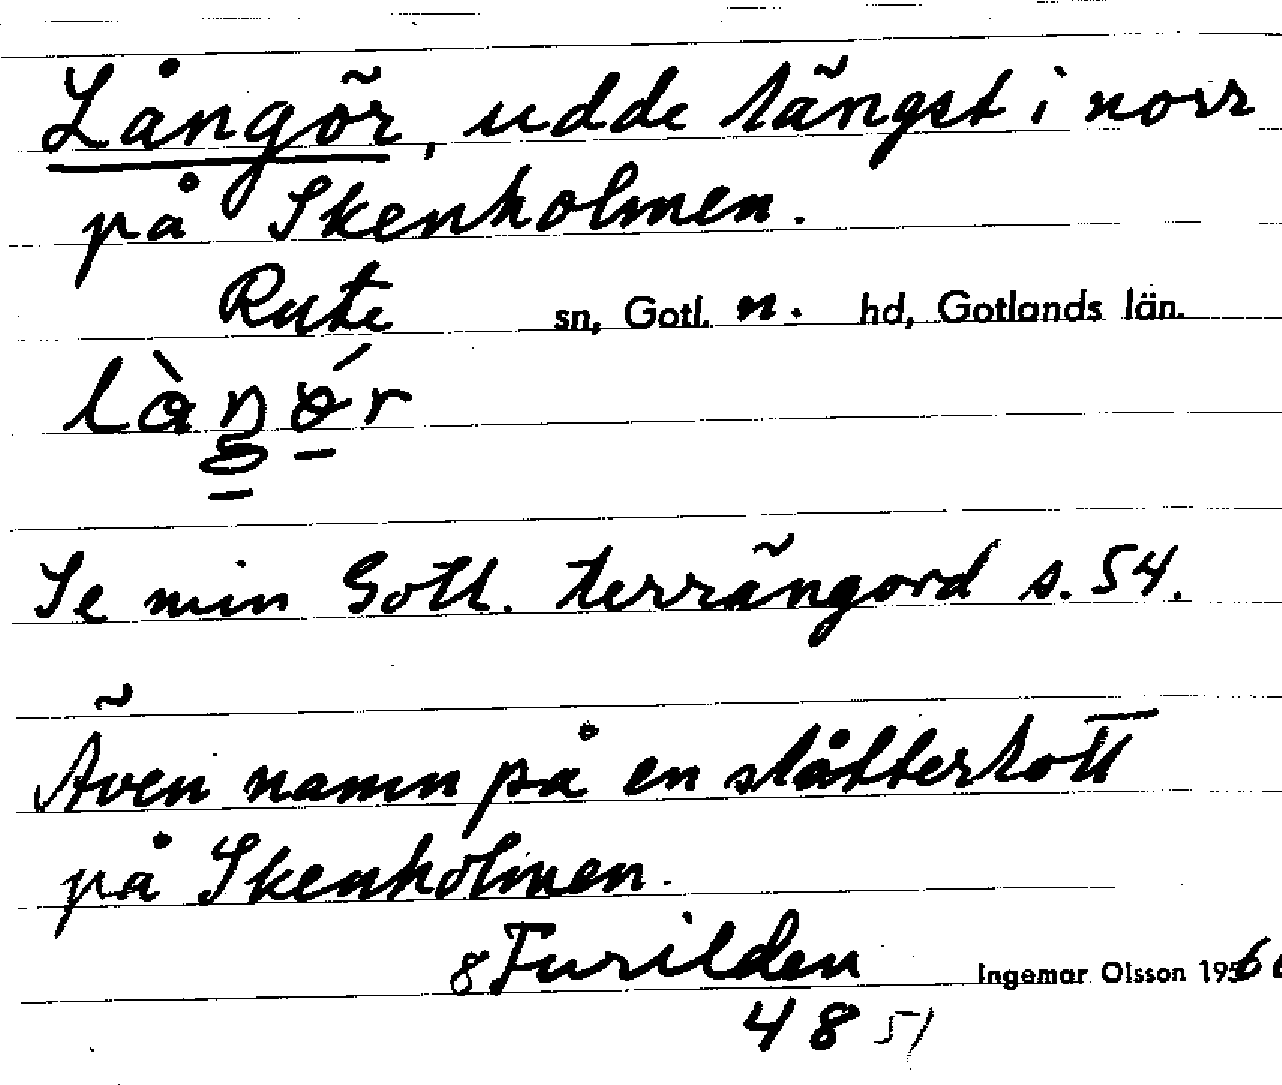 Långör, udde längst i norr
på Skenholmen.
Rute sn, Gotl. n. hd, Gotlands län.
Se min Gotl. terrängord s. 54.
Även namn på en slåttertott
på Skenholmen.
8 Furilden Ingemar Olsson 1956
48 51